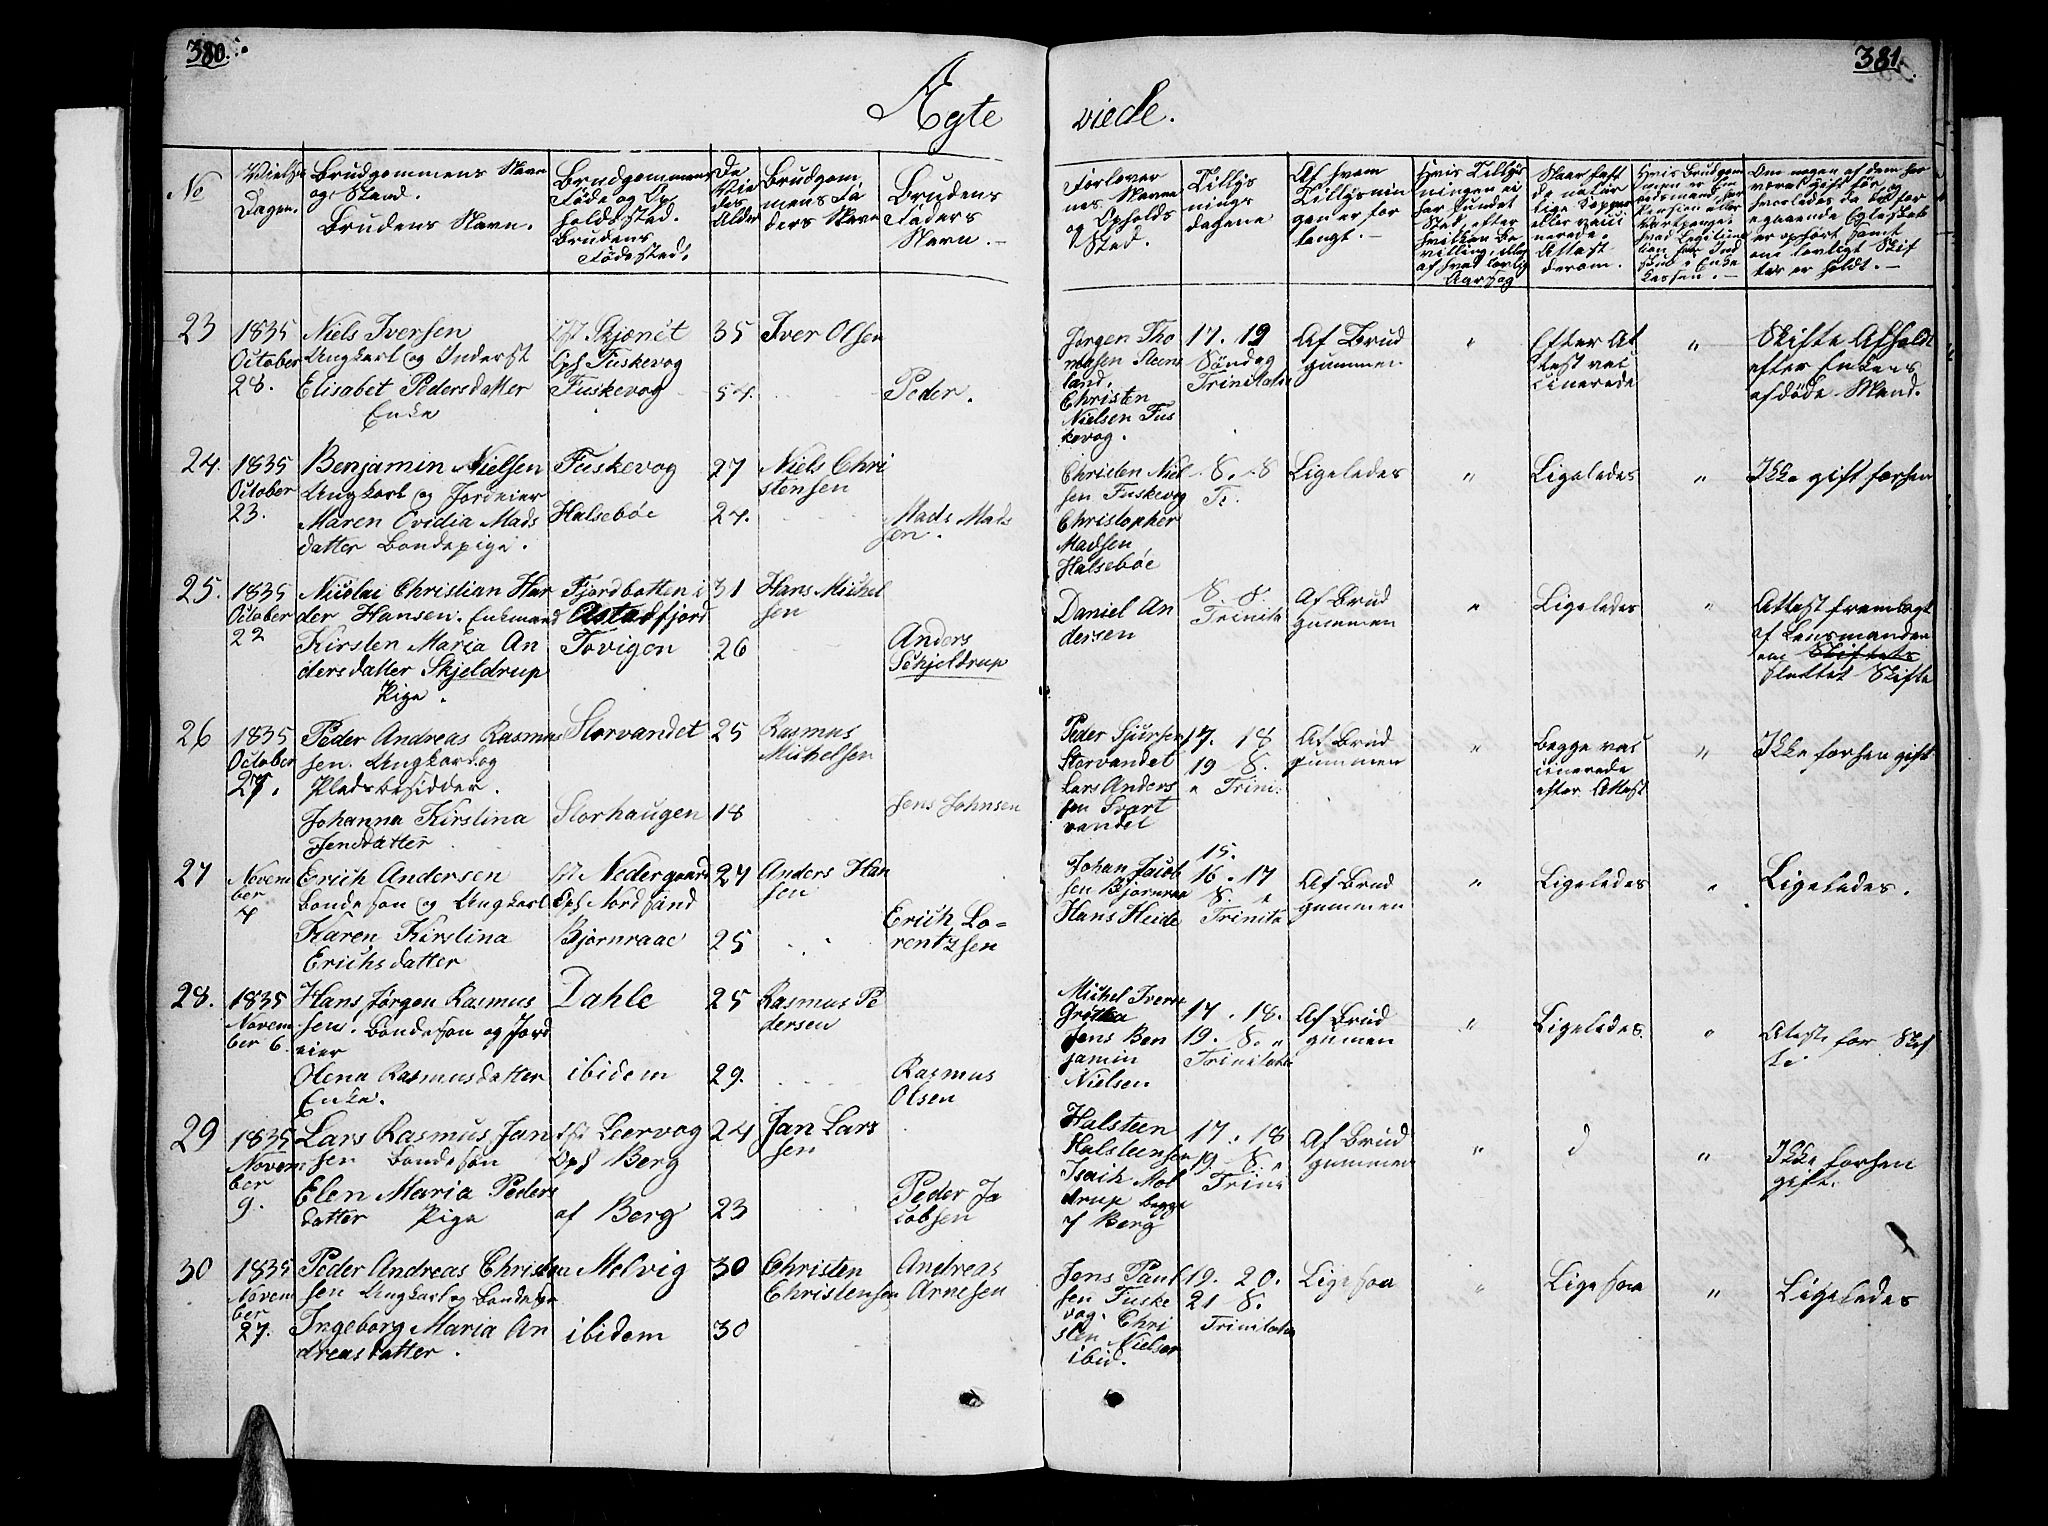 380.
381.
Ægte
viede.
No
Vielses
Dagen.
Brudgommens Navn
og Stand.
Brudens Navn.
Brudgommens
Føde og Op
holdssted.
Brudens
Fødested.
De
Vie
des
Alder
Brudgom
mens Fa
ders Navn
Brudens
Faders
Navn.
Forlover
nes Navne
og Opholds
Sted.
Tillys
nings
dagene
Af hvem
Tillysnin
gen er for
langt.
Hvis Tillys
ningen ei
har fundet
Sted, efter
hvilken Be
villing, eller
af hvad lovlig
Aarsag
23
1835
October
28.
Niels Iversen
Ungkarl og Inderst
Elisabet Pedersdatter
Enke
Fuskevog
Fuskevog
35
54.
Iver Olsen
Peder.
Jørgen Tho
masen
land.
Christen
Nielsen Fus
kevog.
17. 19
Søndag
Trinitatis
Af Brud
gummen
"
Efter At
test vac
cinerede
"
Skifte Afholdt
efter Enkens
afdøde Mand.
24.
1835
October
23.
Benjamin Nielsen
Ungkarl og Jordeier
Maren Ovidia Mads
datter Bondepige.
Fuskevog
Halsebøe
27
27.
Niels Chri
stensen
Mads Mads
sen.
Christen Niel
sen Fuskevog
Christopher
Madsen
Halsebøe
Tr.
Ligeledes
"
Ligeledes
"
Ikke gift forhen
25.
1835
October
22
Nicolai Christian Har
der Hansen. Enkemand
Kirsten Maria An
dersdatter Skjeldrup
Pige.
Fjordbotten i
Astadfjord
Tovigen
31
26
Hans Michel
sen
Anders
Schjeldrup
Daniel An
dersen
8. 8.
Trinita
Af Brud
gummen
"
Ligeledes
"
Attest fremlagt
af Lensmanden
om
sluttet Skifte
26
1835
October
27.
Peder Andreas Rasmus
sen. Ungkarl og
Pladsbesidder.
Johanna Kirstina
Jensdatter
Storvandet
Storhaugen
25
18
Rasmus
Michelsen
Jens Johnsen
Peder Sjursen
Storvandet
Lars Anders
sen Svart
vandet
17. 18
19 8.
Trini
Af Brud
gummen
"
Begge vac
cinerede
efter Attest
"
Ikke forhen gift
27
Novem
ber
4
Erich Andersen
Bondesøn og Ungkarl
Karen Kirstina
Erichsdatter
Nedergaard
Oph Nordsand
Bjørnraae
24
25
Anders Han
sen
Erich Lo-
rentzsen
Johan Jacob
sen Bjørnraa
Hans Heide
15.
16. 17
8.
Trinita
Af Brud
gummen
"
Ligeledes
"
Ligeledes.
28.
1835
Novem
ber 6.
Hans Jørgen Rasmus
sen. Bondesøn og Jord
eier
Olena Rasmusdatter
Enke.
Dahle
ibidem
25
29.
Rasmus Pe
dersen
Rasmus
Olsen
Michel
Jens Ben
jamin
Nielsen
17. 18.
19. 8.
Trinitatis
Af Brud
gumen
"
Ligeledes.
"
Atest for Skif
te
29
1835
Novem
ber
9.
Lars Rasmus Jan
sen Bondesøn
Elen Maria Peders
datter Pige
Leervog
Oph Berg
af Berg
24
23
Jan Lars
sen
Peder Ja
cobsen
Halsteen
Halsteensen
Isach Mol
drup begge
af Berg
17. 18
19. 8.
Trini
Af Brud
gummen
"
"
Ikke forhen
gift.
30
1835
Novem
ber
27.
Peder Andreas Christen
sen Ungkarl og Bondesøn
Ingeborg Maria An
dreasdatter.
Melvig
ibidem
30
30
Christen
Christensen
Andreas
Arnesen
Jens Paul
sen Fuske
vog. Chri
sten Nielsen
ibid.
19. 20.
21 8.
Trinitatis
Ligesaa
"
Ligesaa
"
Ligeledes